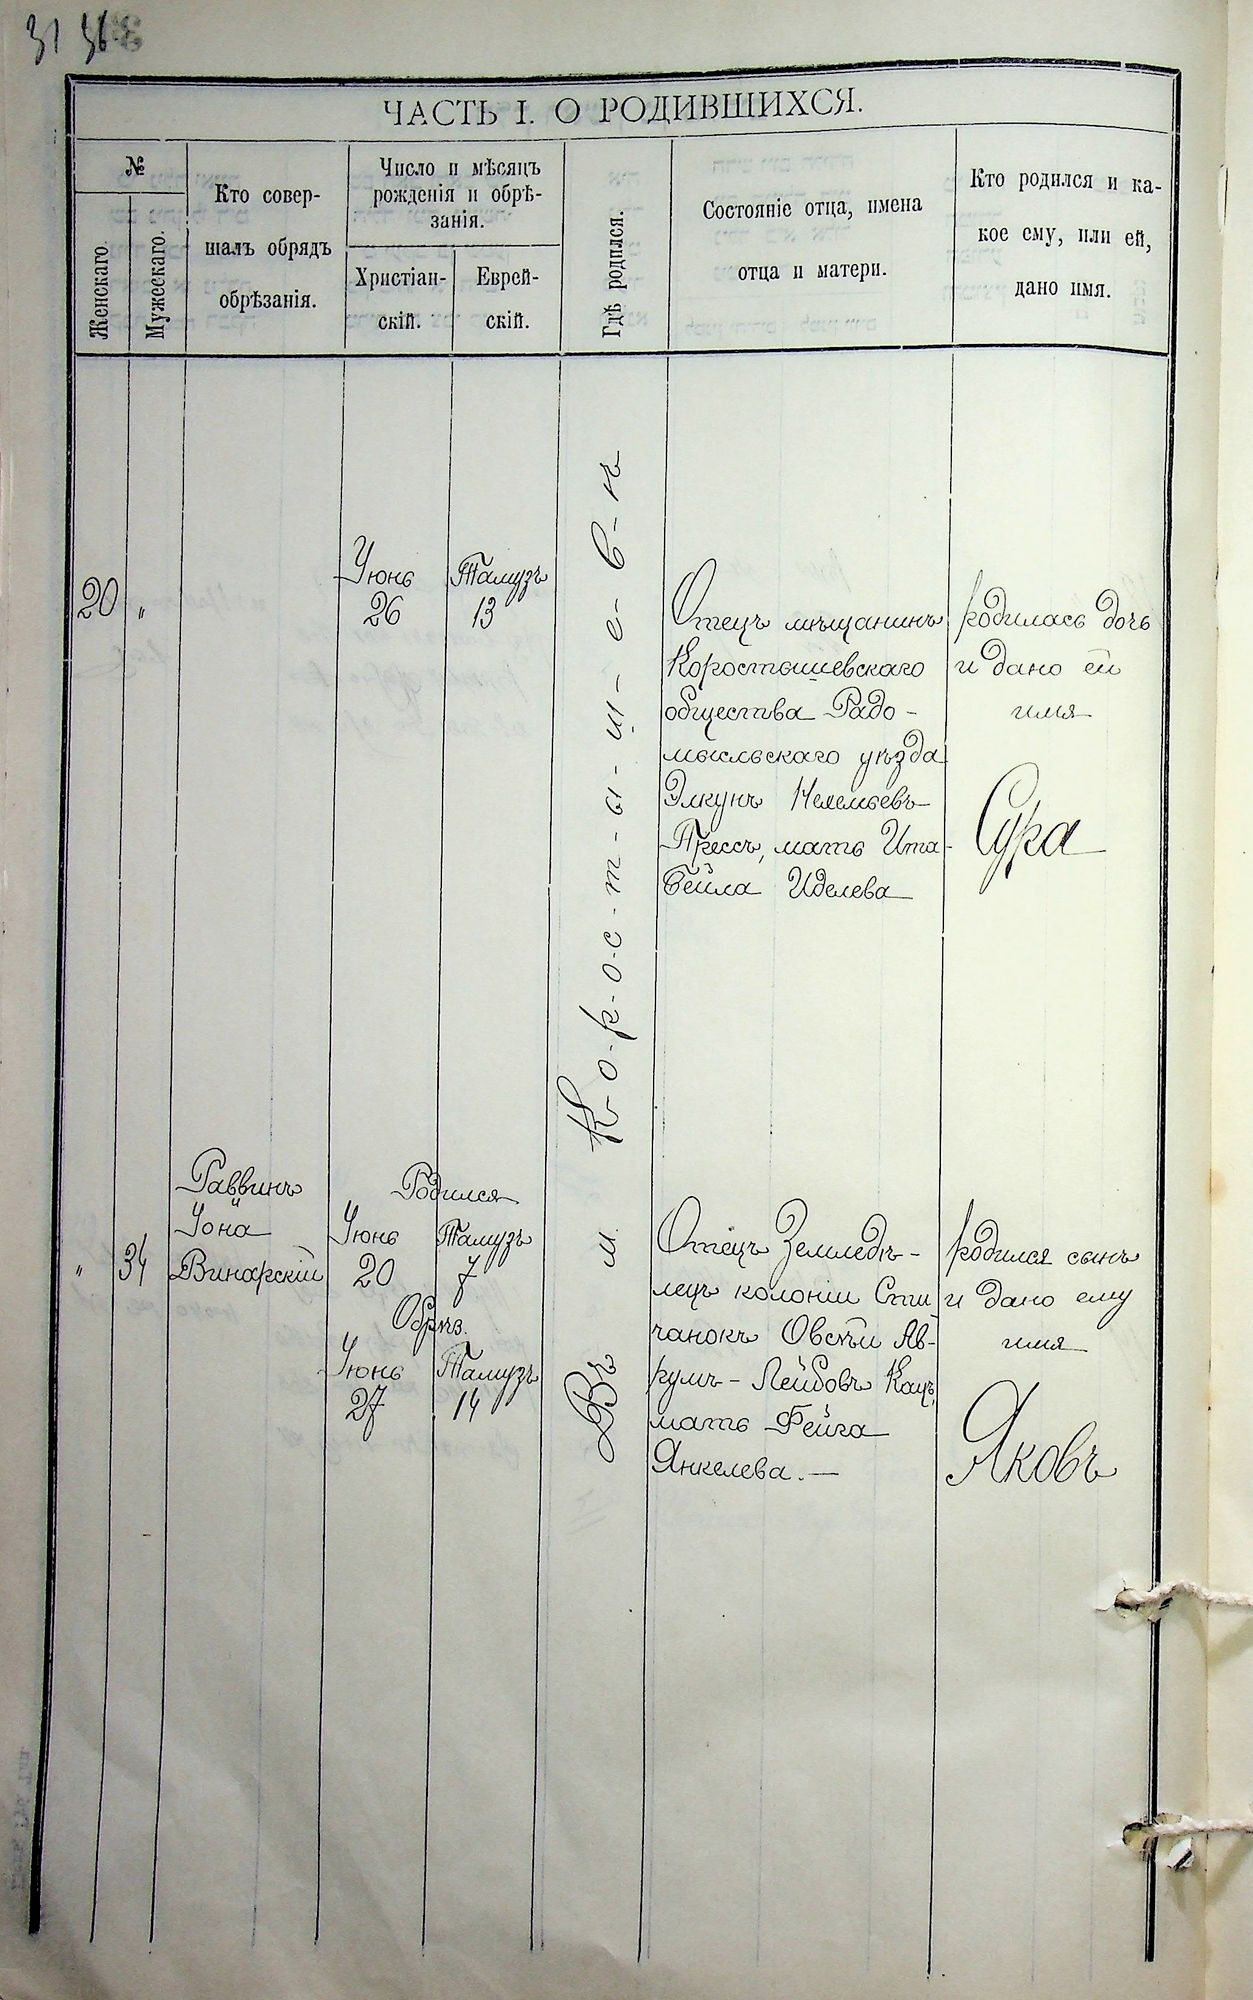 31 36
ЧАСТЬ I. О РОДИВШИХСЯ.
№
Женскаго.
Мужескаго.
Кто совер-
шалъ обрядъ
обрѣзанія.
Число и мѣсяцъ
рожденія и обрѣ-
занія.
Христіан-
скій.
Еврей-
скій.
Гдѣ родился.
Состояніе отца, имена
отца и матери.
Кто родился и ка-
кое ему, или ей,
дано имя.
20 "
Іюнь
26
Тамузъ
13
Въ м. К-о-р-о-с-т-ы-ш-е-в-ѣ
Отецъ мѣщанинъ
Коростышевскаго
общества Радо-
мысльскаго уѣзда
Элкунъ Нехемьевъ
Прессъ, мать Ита-
Бейла Иделева
родилась дочь
и дано ей
имя
Сура
" 34
Раввинъ
Іона
Винарскій
Родился
Іюнь
20
Тамузъ
7
Обрѣз.
Іюнь
27
Тамузъ
14
Отецъ Земледѣ-
лецъ колоніи Сти
чанокъ Овсѣй Ав-
румъ-Лейбовъ Кацъ,
мать Фейга
Янкелева.—
родился сынъ
и дано ему
имя
Яковъ